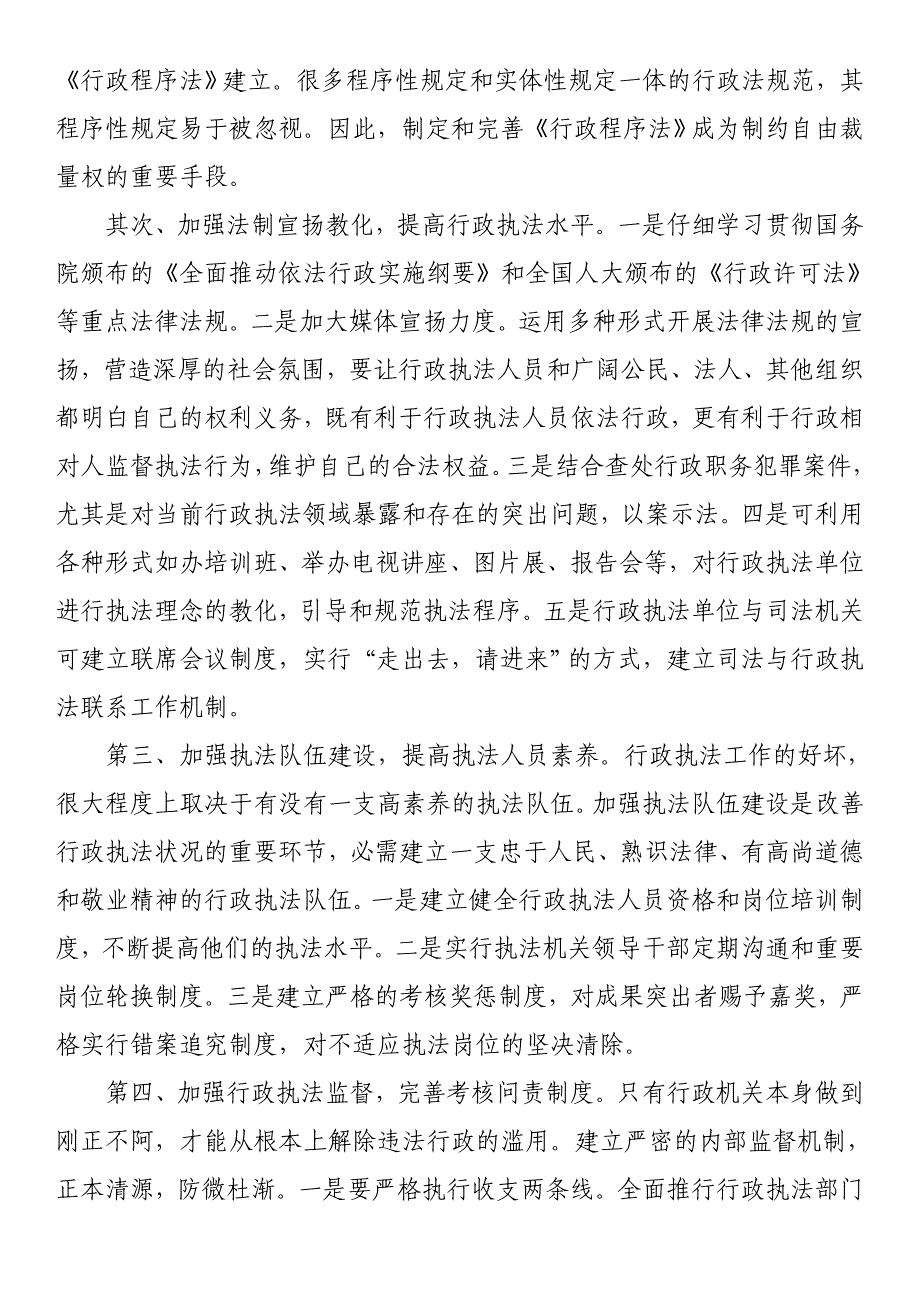 《行政程序法》建立。很多程序性规定和实体性规定一体的行政法规范，其
程序性规定易于被忽视。因此，制定和完善《行政程序法》成为制约自由裁
量权的重要手段。
其次、加强法制宣扬教化，提高行政执法水平。一是仔细学习贯彻国务
院颁布的《全面推动依法行政实施纲要》和全国人大颁布的《行政许可法》
等重点法律法规。二是加大媒体宣扬力度。运用多种形式开展法律法规的宣
扬，营造深厚的社会氛围，要让行政执法人员和广阔公民、法人、其他组织
都明白自己的权利义务，既有利于行政执法人员依法行政，更有利于行政相
对人监督执法行为，维护自己的合法权益。三是结合查处行政职务犯罪案件，
尤其是对当前行政执法领域暴露和存在的突出问题，以案示法。四是可利用
各种形式如办培训班、举办电视讲座、图片展、报告会等，对行政执法单位
进行执法理念的教化，引导和规范执法程序。五是行政执法单位与司法机关
可建立联席会议制度，实行“走出去，请进来”的方式，建立司法与行政执
法联系工作机制。
第三、加强执法队伍建设，提高执法人员素养。行政执法工作的好坏，
很大程度上取决于有没有一支高素养的执法队伍。加强执法队伍建设是改善
行政执法状况的重要环节，必需建立一支忠于人民、熟识法律、有高尚道德
和敬业精神的行政执法队伍。一是建立健全行政执法人员资格和岗位培训制
度，不断提高他们的执法水平。二是实行执法机关领导干部定期沟通和重要
岗位轮换制度。三是建立严格的考核奖惩制度，对成果突出者赐予嘉奖，严
格实行错案追究制度，对不适应执法岗位的坚决清除。
第四、加强行政执法监督，完善考核问责制度。只有行政机关本身做到
刚正不阿，才能从根本上解除违法行政的滥用。建立严密的内部监督机制，
正本清源，防微杜渐。一是要严格执行收支两条线。全面推行行政执法部门